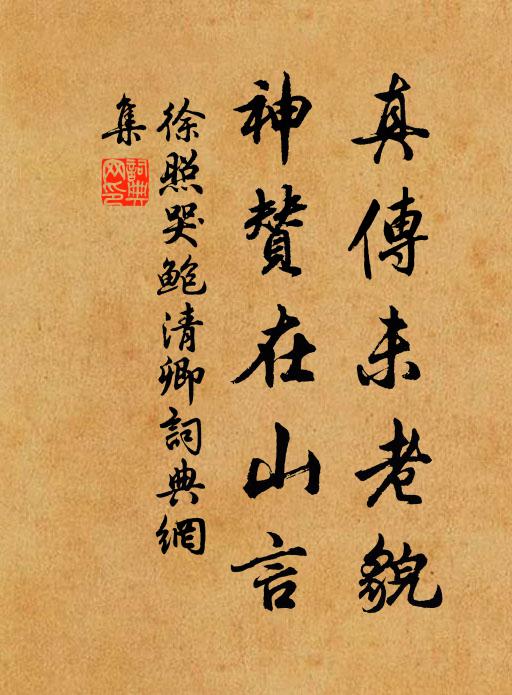 真傳未老貌
神贊在山言
徐照哭鮑清卿詞典網
集
詞典
网印